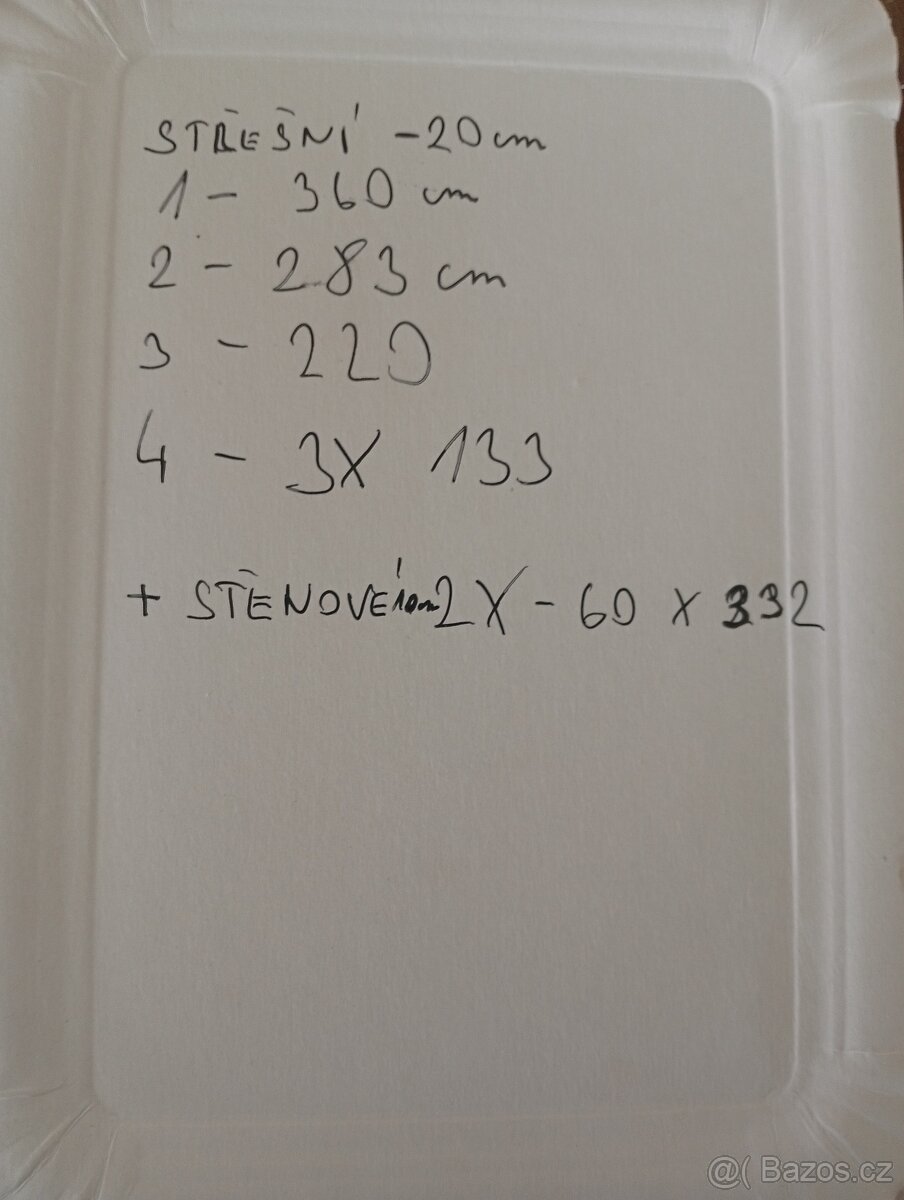 STŘEŠNÍ - 20 cm
1 - 360 cm
2 - 283 cm
3 - 220
4 - 3X 133
+ STĚNOVÉ 10cm 2X - 60 X 332
@( Bazos.cz